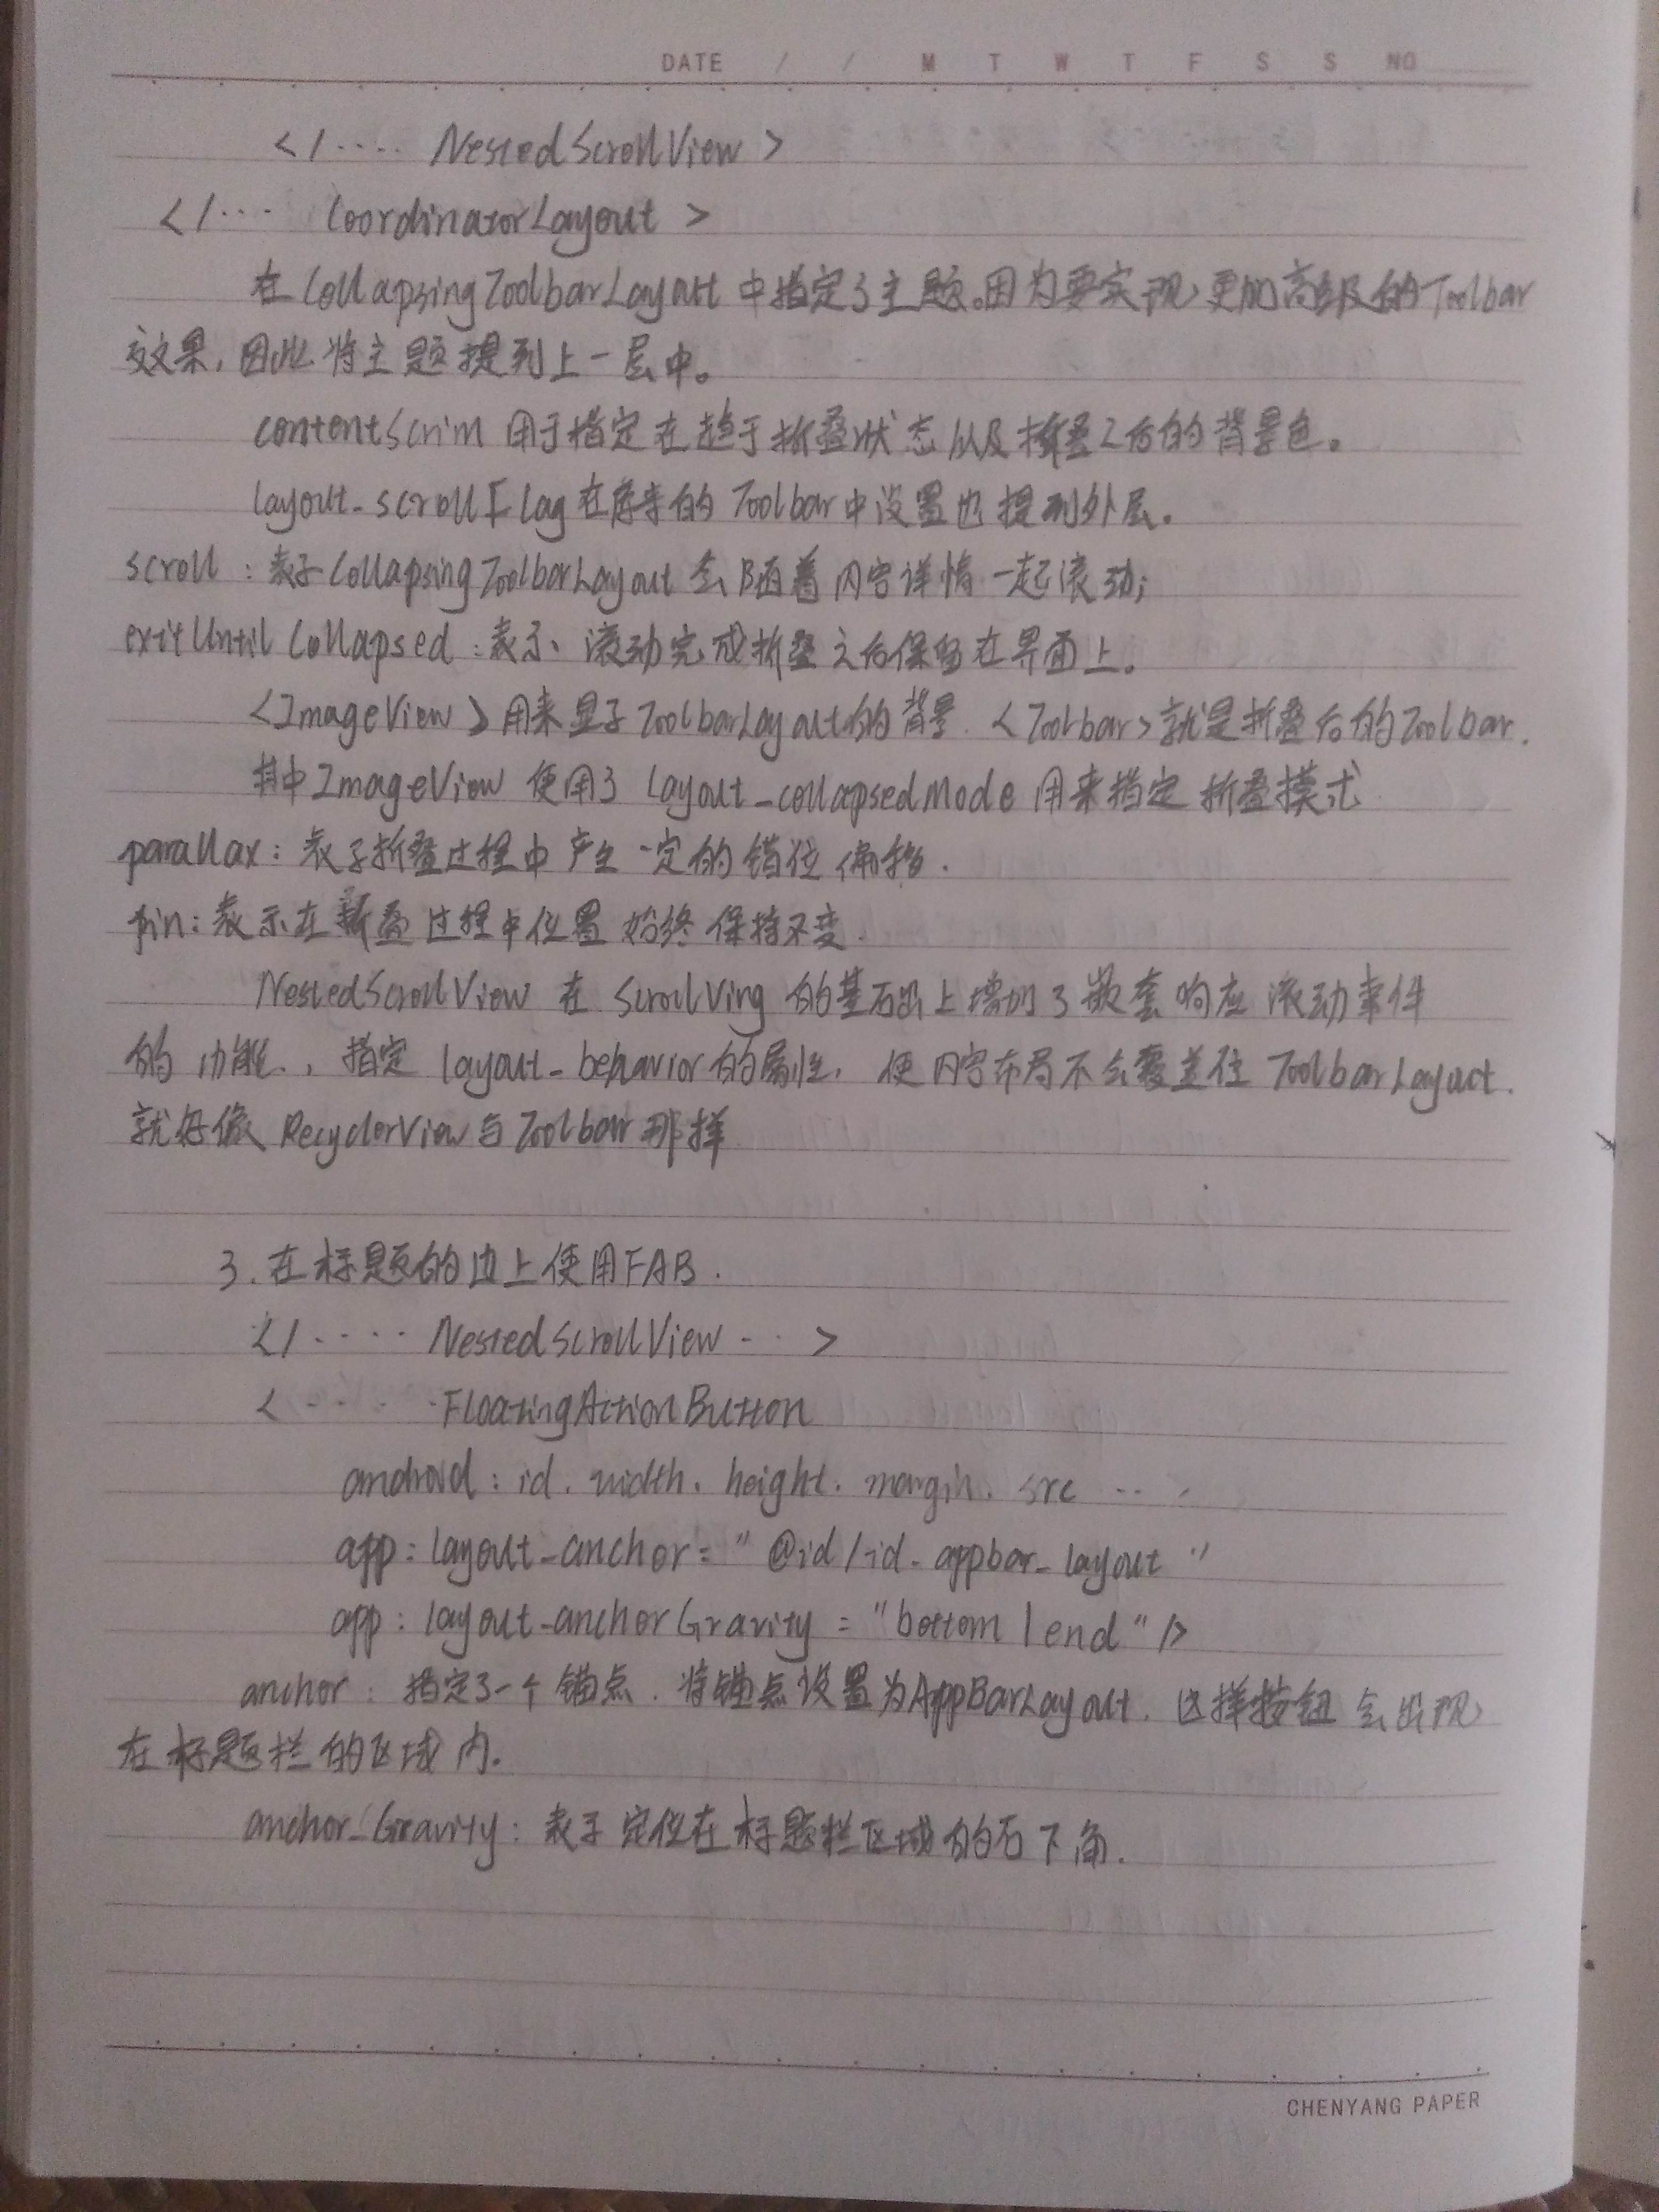 DATE / / M T W T F S S NO
</···· NestedScrollView >
</··· CoordinatorLayout >
在CollapsingToolbarLayout中指定了主题。因为要实现更加高级的Toolbar
效果，因此将主题提到上一层中。
contentScrim 用于指定在趋于折叠状态以及折叠之后的背景色。
layout_scrollFlag在原来的Toolbar中设置也提到外层。
scroll：表示CollapsingToolbarLayout会随着内容详情一起滚动；
exitUntilCollapsed：表示、滚动完成折叠之后保留在界面上。
<ImageView>用来显示ToolbarLayout的背景. <Toolbar>就是折叠后的Toolbar.
其中ImageView 使用了 layout_collapsedMode 用来指定折叠模式
parallax：表示折叠过程中产生一定的错位偏移.
pin：表示在折叠过程中位置始终保持不变.
NestedScrollView 在 ScrollVing 的基础上增加了嵌套响应滚动事件
的功能.，指定 layout_behavior的属性，使内容布局不会覆盖住 ToolbarLayout.
就好像 RecyclerView与Toolbar那样
3. 在标题的边上使用FAB.
</···· NestedScrollView ·· >
< ···· FloatingActionButton
android：id. width. height. margin. src ···
app：layout_anchor = "@id/id_appbar_layout"
app：layout_anchorGravity = "bottom|end"/>
anchor：指定了一个锚点. 将锚点设置为AppBarLayout. 这样按钮会出现
在标题栏的区域内.
anchor_Gravity：表示定位在标题栏区域的右下角.
CHENYANG PAPER